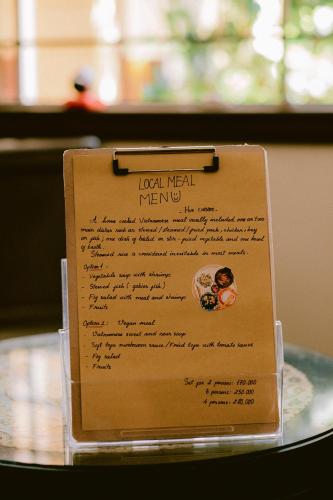 LOCAL MEAL
MENU
- Hue cuisine -
A home cooked Vietnamese meal usually included one or two
main dishes such as stewed / steamed / fried pork, chicken, beef
or fish; one dish of boiled or stir - fried vegetable and one bowl
of broth.
Steamed rice is considered inevitable in most meals.
Option 1:
- Vegetable soup with shrimps
- Stewed fish (galur fish)
- Fig salad with meat and shrimp
- Fruits
Option 2: Vegan meal
- Vietnamese sweet and sour soup
- Soft tofu mushroom sauce / Fried tofu with tomato sauce
- Fig salad
- Fruits
Set for 2 persons: 170.000
3 persons: 250.000
4 persons: 285.000